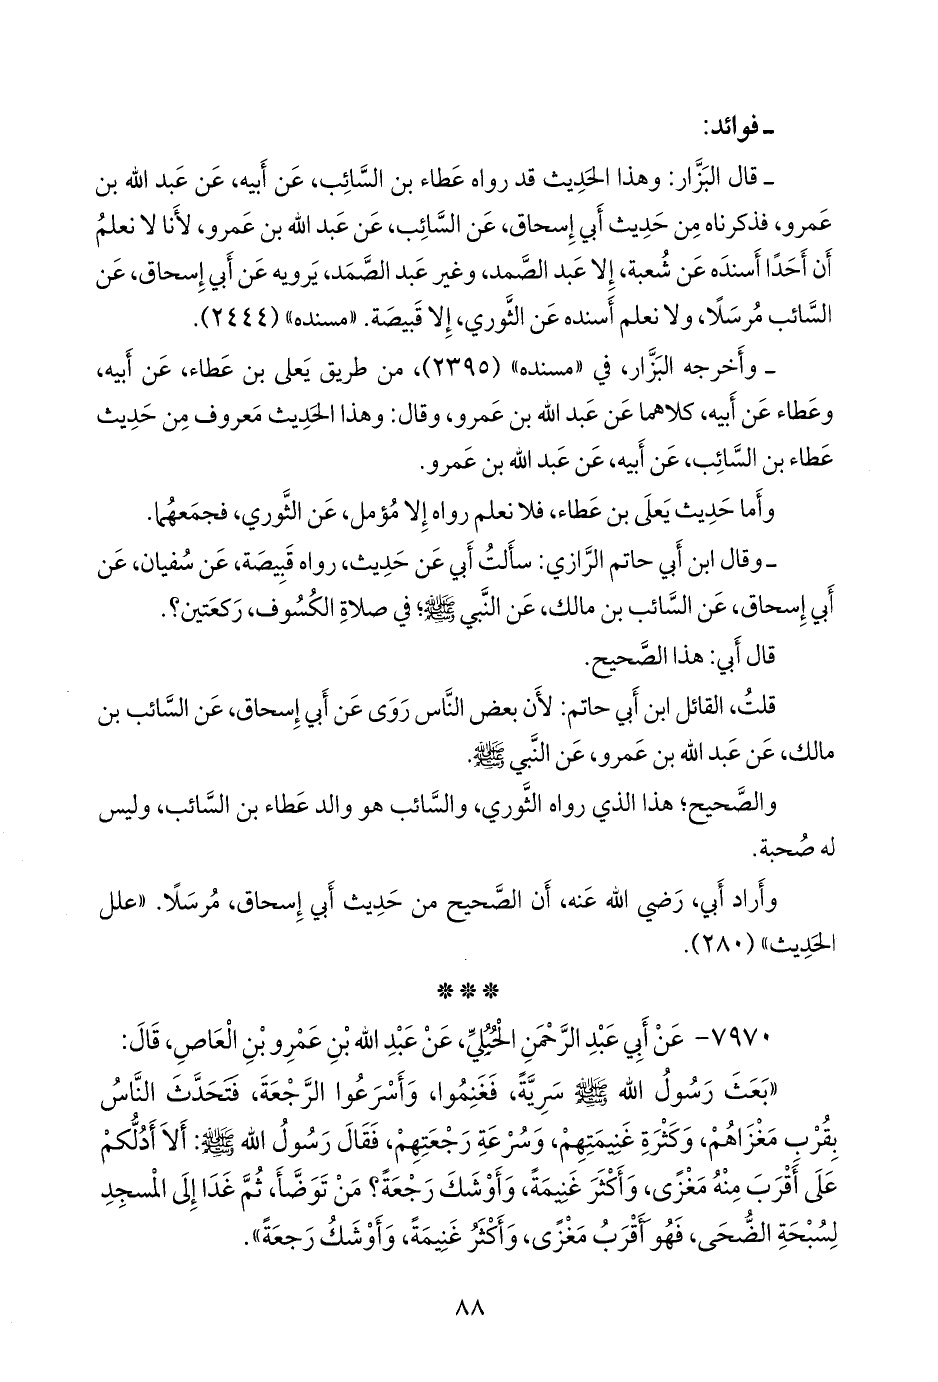 ـ فوائد:
ـ قال البَزَّار: وهذا الحَدِيث قد رواه عَطاء بن السَّائِب، عَن أَبيه، عَن عَبد الله بن
عَمرو، فذكرناه مِن حَدِيث أَبي إِسحاق، عَن السَّائِب، عَن عَبد الله بن عَمرو، لأَنا لا نعلمُ
أَن أَحَدًا أَسندَه عَن شُعبة، إِلا عَبد الصَّمد، وغير عَبد الصَّمَد، يَرويه عَن أَبي إِسحاق، عَن
السَّائب مُرسَلًا، ولا نعلم أَسنده عَن الثَّوري، إِلا قَبيصَة. «مسنده» (٢٤٤٤).
ـ وأَخرجه البَزَّار، في «مسنده» (٢٣٩٥)، من طريق يَعلى بن عَطاء، عَن أَبيه،
وعَطاء عَن أَبيه، كلاهما عَن عَبد الله بن عَمرو، وقال: وهذا الحَديث مَعروف مِن حَدِيث
عَطاء بن السَّائِب، عَن أَبيه، عَن عَبد الله بن عَمرو.
وأَما حَدِيث يَعلَى بن عَطاء، فلا نعلم رواه إِلا مُؤمل، عَن الثَّوري، فجمَعهُما.
ـ وقال ابن أَبي حاتم الرَّازي: سأَلتُ أَبي عَن حَدِيث، رواه قَبِيصَة، عَن سُفيان، عَن
أَبي إِسحاق، عَن السَّائب بن مالك، عَن النَّبي ﷺ؛ في صلاةِ الكُسُوف، رَكعَتين؟.
قال أَبي: هذا الصَّحيح.
قلتُ، القائل ابن أَبي حاتم: لأَن بعض النَّاس رَوَى عَن أَبي إِسحاق، عَن السَّائب بن
مالك، عَن عَبد الله بن عَمرو، عَن النَّبي ﷺ.
والصَّحيح؛ هذا الذي رواه الثَّوري، والسَّائب هو والد عَطاء بن السَّائب، وليس
له صُحبة.
وأَراد أَبي، رَضي الله عَنه، أَن الصَّحيح من حَدِيث أَبي إِسحاق، مُرسَلًا. «علل
الحَدِيث» (٢٨٠).
***
٧٩٧٠- عَنْ أَبِي عَبْدِ الرَّحْمَنِ الْحُبُلِيِّ، عَنْ عَبْدِ الله بْنِ عَمْرِو بْنِ الْعَاصِ، قَالَ:
«بَعَثَ رَسُولُ الله ﷺ سَرِيَّةً، فَغَنِمُوا، وَأَسْرَعُوا الرَّجْعَةَ، فَتَحَدَّثَ النَّاسُ
بِقُرْبِ مَغْزَاهُمْ، وَكَثْرَةِ غَنِيمَتِهِمْ، وَسُرْعَةِ رَجْعَتِهِمْ، فَقَالَ رَسُولُ الله ﷺ: أَلاَ أَدُلُّكمْ
عَلَى أَقْرَبَ مِنْهُ مَغْزًى، وَأَكْثَرَ غَنِيمَةً، وَأَوْشَكَ رَجْعَةً؟ مَنْ تَوَضَّأَ، ثُمَّ غَدَا إِلَى الْمسجِدِ
لِسُبْحَةِ الضُّحَى، فَهُو أَقْرَبُ مَغْزًى، وَأَكْثَرُ غَنِيمَةً، وَأَوْشَكُ رَجعَةً».
٨٨